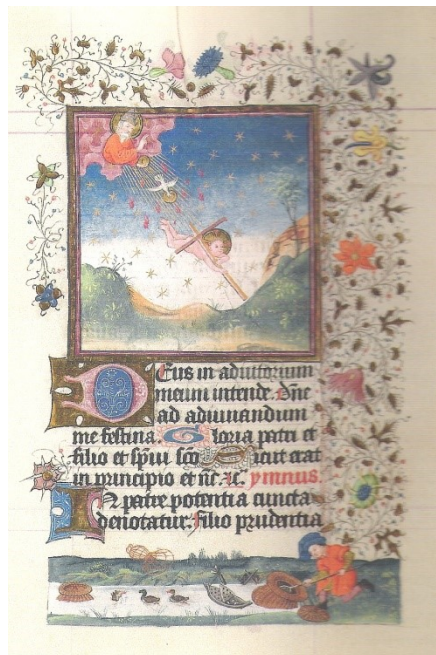 DEus in adiutorium
meum intende. Dñe
ad adiuuandum
me festina. Gloria patri et
filio et sp̄ui sc̄o. Sicut erat
in principio et nc̄. ⁊c̄. ymnus.
IN patre potentia cuncta
denotatur. filio prudentia